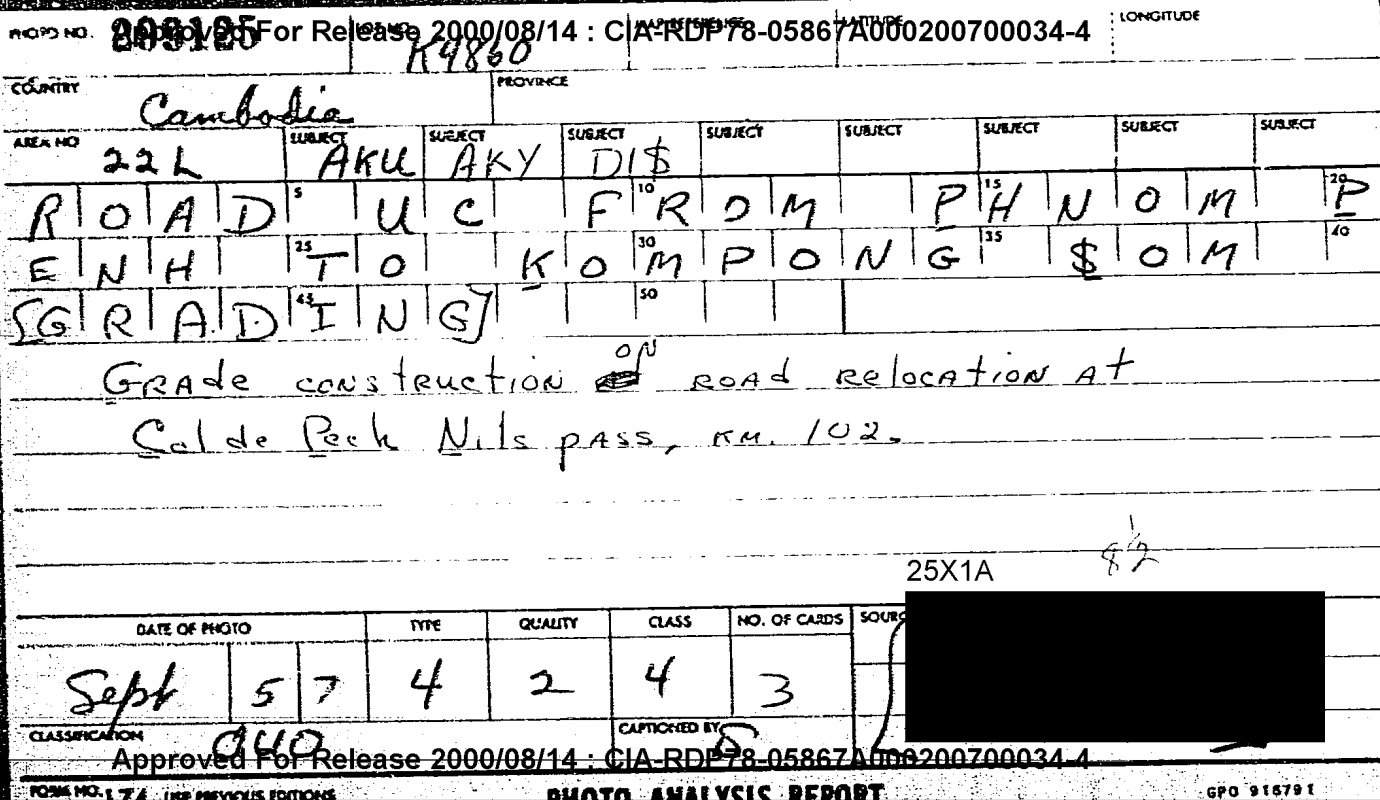 Approved For Release 2000/08/14 : CIA-RDP78-05867A000200700034-4
PHOTO NO. 209125 K9860 MAP REFERENCE LATITUDE LONGITUDE
COUNTRY Cambodia PROVINCE
AREA NO 22L SUBJECT AKU SUBJECT AKY SUBJECT DI$ SUBJECT SUBJECT SUBJECT SUBJECT SUBJECT
5 10 15 20
ROAD UC FROM PHNOM P
25 30 35 40
ENH TO KOMPONG $OM
45 50
[GRADING]
GRAde construction ON ROAd Relocation At
Col de Peck Nils pass, KM. 102.
8 1/2
25X1A
DATE OF PHOTO TYPE QUALITY CLASS NO. OF CARDS
Sept 57 4 2 4 3
CLASSIFICATION OUO CAPTIONED BY
Approved For Release 2000/08/14 : CIA-RDP78-05867A000200700034-4
FORM NO. USE PREVIOUS EDITIONS PHOTO ANALYSIS REPORT GPO 915791